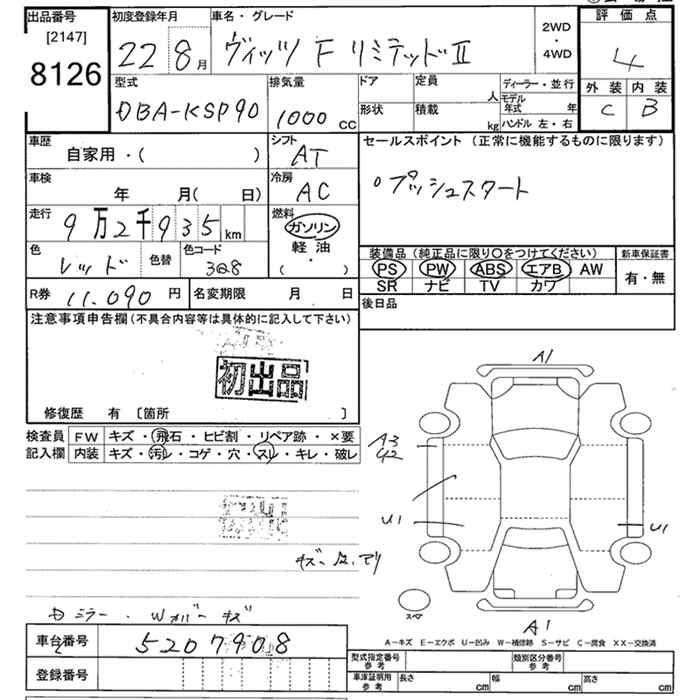 出品番号
[2147]
8126
初度登録年月
22 8月
車名・グレード
ヴィッツ F リミテッドⅡ
2WD
・
4WD
評価点
4
外装 内装
C B
型式
DBA-KSP90
排気量
1000 cc
ドア
形状
定員
人
積載
kg
ディーラー・並行
モデル
年式 年
ハンドル 左・右
車歴
自家用・( )
シフト
AT
セールスポイント (正常に機能するものに限ります)
○プッシュスタート
車検
年 月( 日)
冷房
AC
走行
9万2千935km
燃料
ガソリン
軽油
( ・ )
色
レッド
色替
色コード
3Q8
装備品 (純正品に限り○をつけてください)
PS PW ABS エアB AW
SR ナビ TV カワ
新車保証書
有・無
R券 11,090 円
名変期限 月 日
後日品
注意事項申告欄 (不具合内容等は具体的に記入して下さい)
初出品
修復歴 有 〔箇所 〕
検査員
記入欄
FW キズ・飛石・ヒビ割・リペア跡・×要
内装 キズ・汚レ・コゲ・穴・スレ・キレ・破レ
A1
A3
U2
U1
U1
スペア
A1
ミラー・Wカバーキズ
車台番号
5207908
登録番号
A－キズ E－エクボ U－凹み W－補修跡 S－サビ C－腐食 XX－交換済
型式指定番号
参考
類別区分番号
参考
車庫証明用
参考
長さ cm 幅 cm 高さ cm